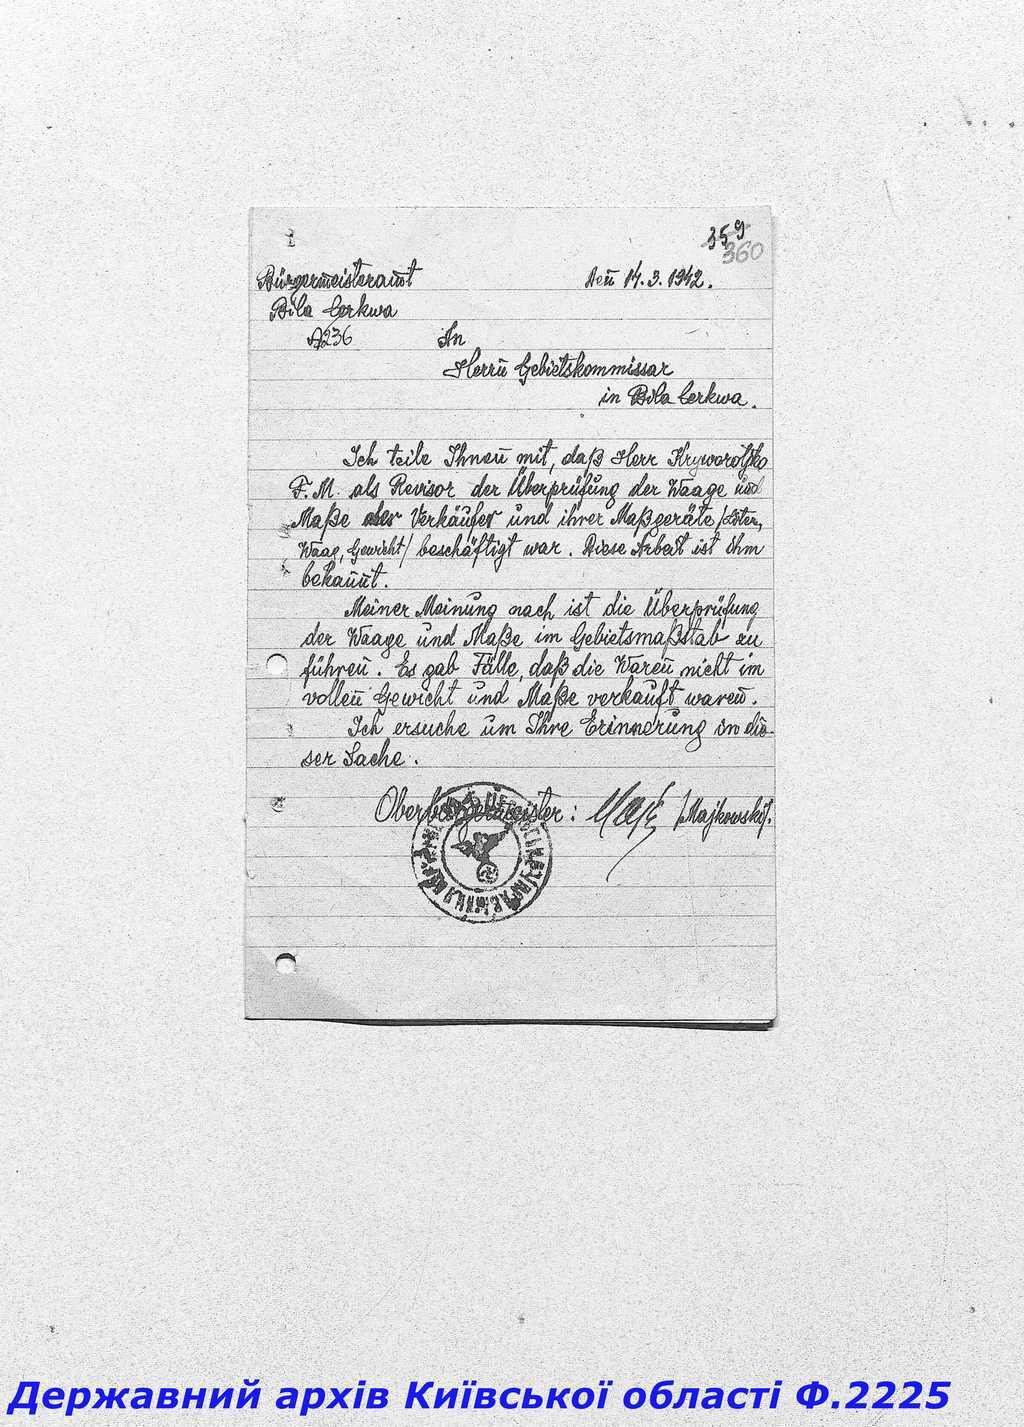 359
360
Bürgermeisteramt
Den 14.3.1942.
Bila Cerkwa
A236
An
Herrn Gebietskommissar
in Bila Cerkwa.
Ich teile Ihnen mit, daß Herr
F. M. als Revisor der Überprüfung der Waage und
Maße der Verkäufer und ihrer Maßgeräte /Liter,
Waag, Gewicht/ beschäftigt war. Diese Arbeit ist ihm
bekannt.
Meiner Meinung nach ist die Überprüfung
der Waage und Maße im Gebietsmaßstab zu
führen. Es gab Fälle, daß die Waren nicht im
vollen Gewicht und Maße verkauft waren.
Ich ersuche um Ihre Erinnerung in die-
ser Sache.
Oberbürgermeister: /Majkowskij/.
Державний архів Київської області Ф.2225